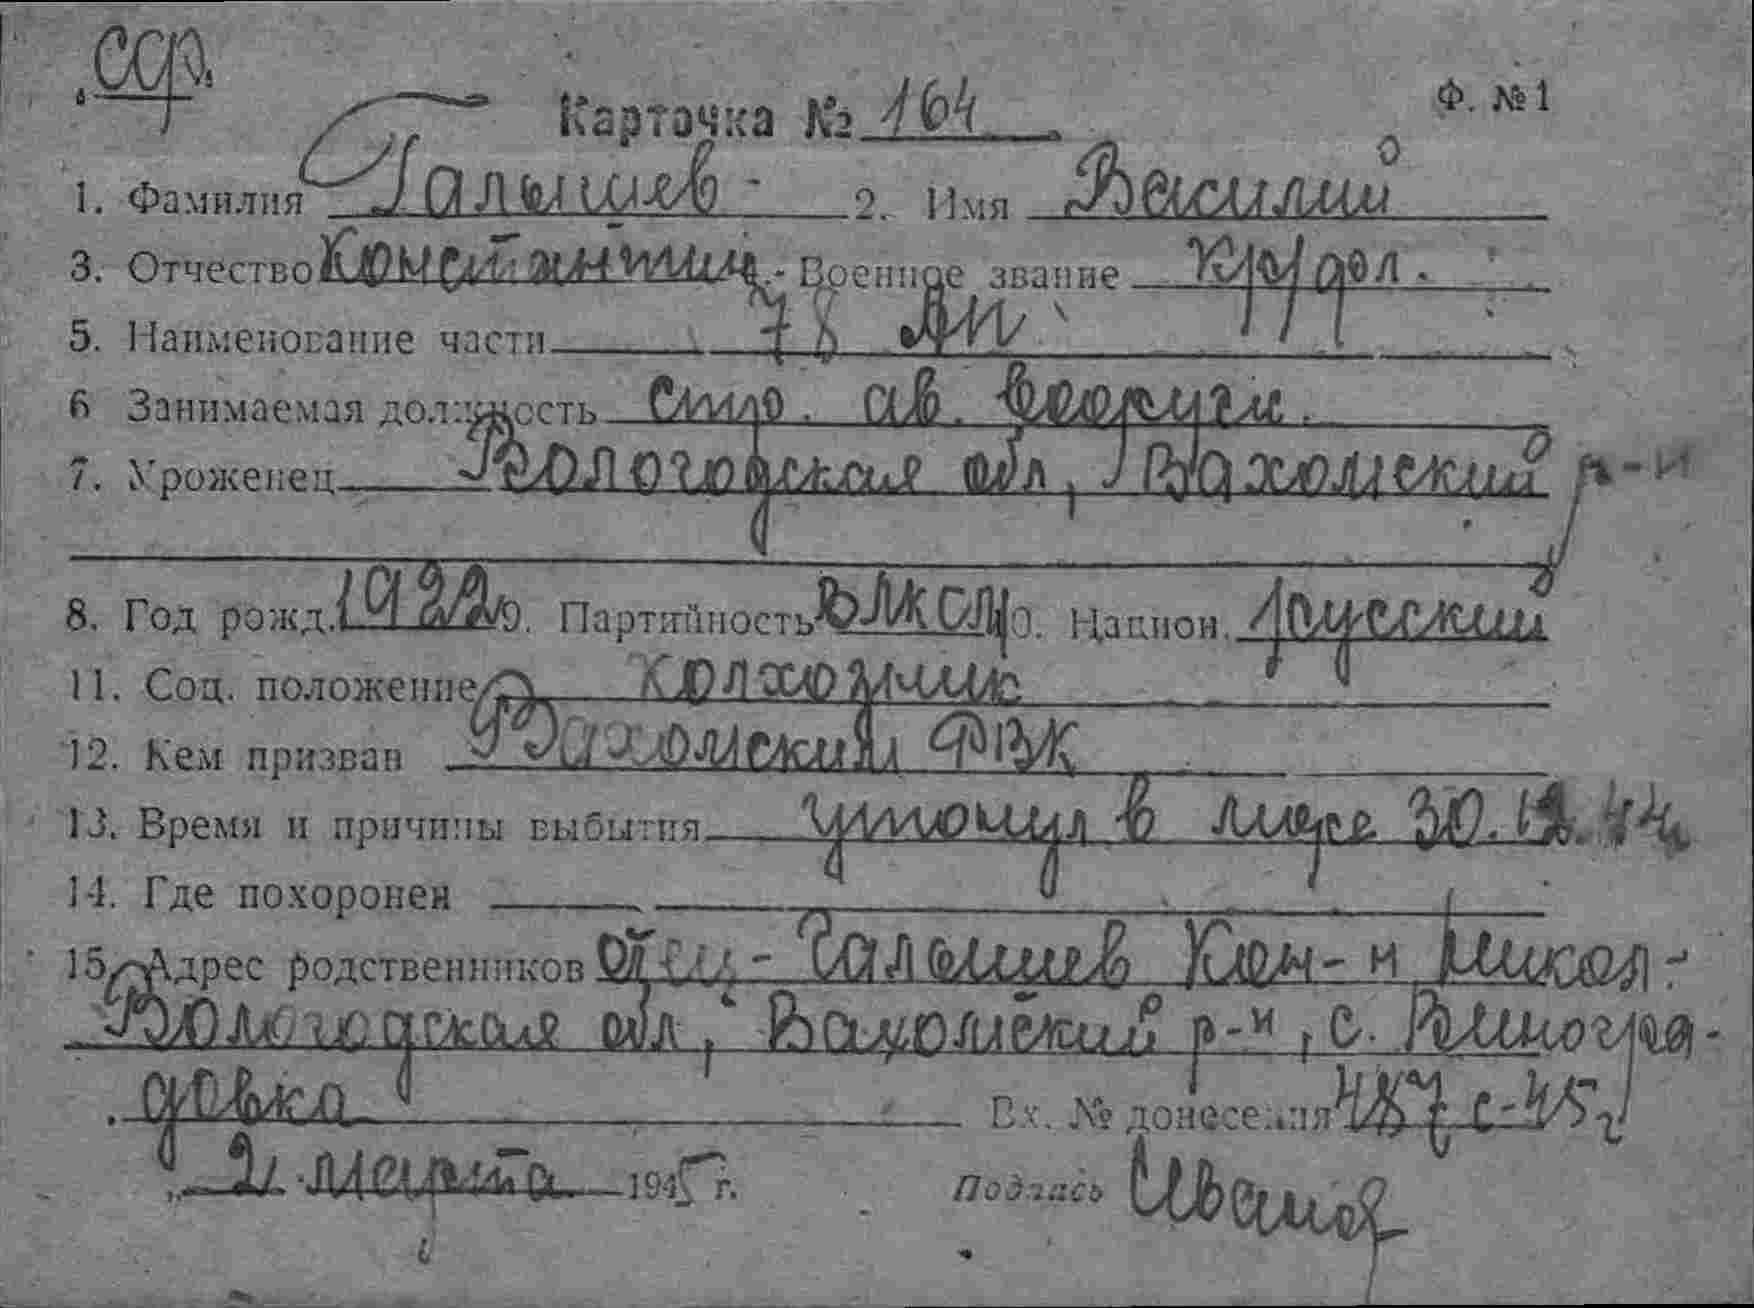 ССР.
Карточка № 164 Ф. № 1
1. Фамилия Галышев - 2. Имя Василий
3. Отчество Константин. - Военное звание кр/фл.
5. Наименование части 78 АП
6 Занимаемая должность стр. ав. вооруж.
7. Уроженец Вологодская обл, Вахомский р-н
8. Год рожд. 1922 9. Партийность ВЛКСМ 10. Национ. русский
11. Соц. положение колхозник
12. Кем призван Вахомским РВК
13. Время и причины выбытия утонул в море 30.12.44
14. Где похоронен
15. Адрес родственников отец - Галышев Кон-н Никол-
Вологодская обл, Вахомский р-н, с. Виногра-
довка Вх. № донесения 487 с-45г
„ 2 марта 1945 г. Подпись Иванов